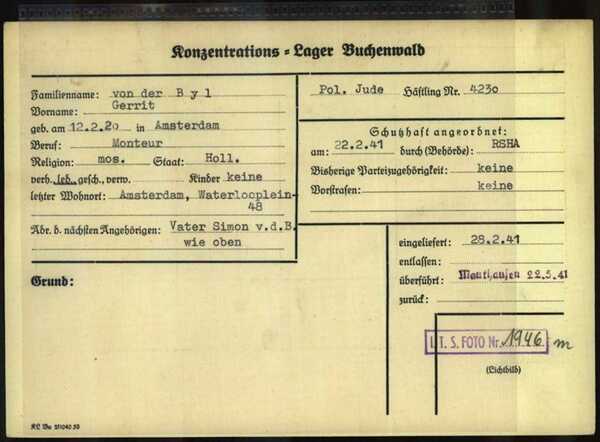 Konzentrations-Lager Buchenwald
Familienname: von der Byl
Vorname: Gerrit
geb. am 12.2.20 in Amsterdam
Beruf: Monteur
Religion: mos. Staat: Holl.
verh. led. gesch., verw. Kinder keine
letzter Wohnort: Amsterdam, Waterlooplein-
48
Adr. d. nächsten Angehörigen: Vater Simon v.d.B.
wie oben
Grund:
Pol. Jude Häftling Nr. 4230
Schutzhaft angeordnet:
am: 22.2.41 durch (Behörde): RSHA
Bisherige Parteizugehörigkeit: keine
Vorstrafen: keine
eingeliefert: 28.2.41
entlassen:
überführt: Mauthausen 22.5.41
zurück:
I.T.S. FOTO Nr. 1946 m
(Lichtbild)